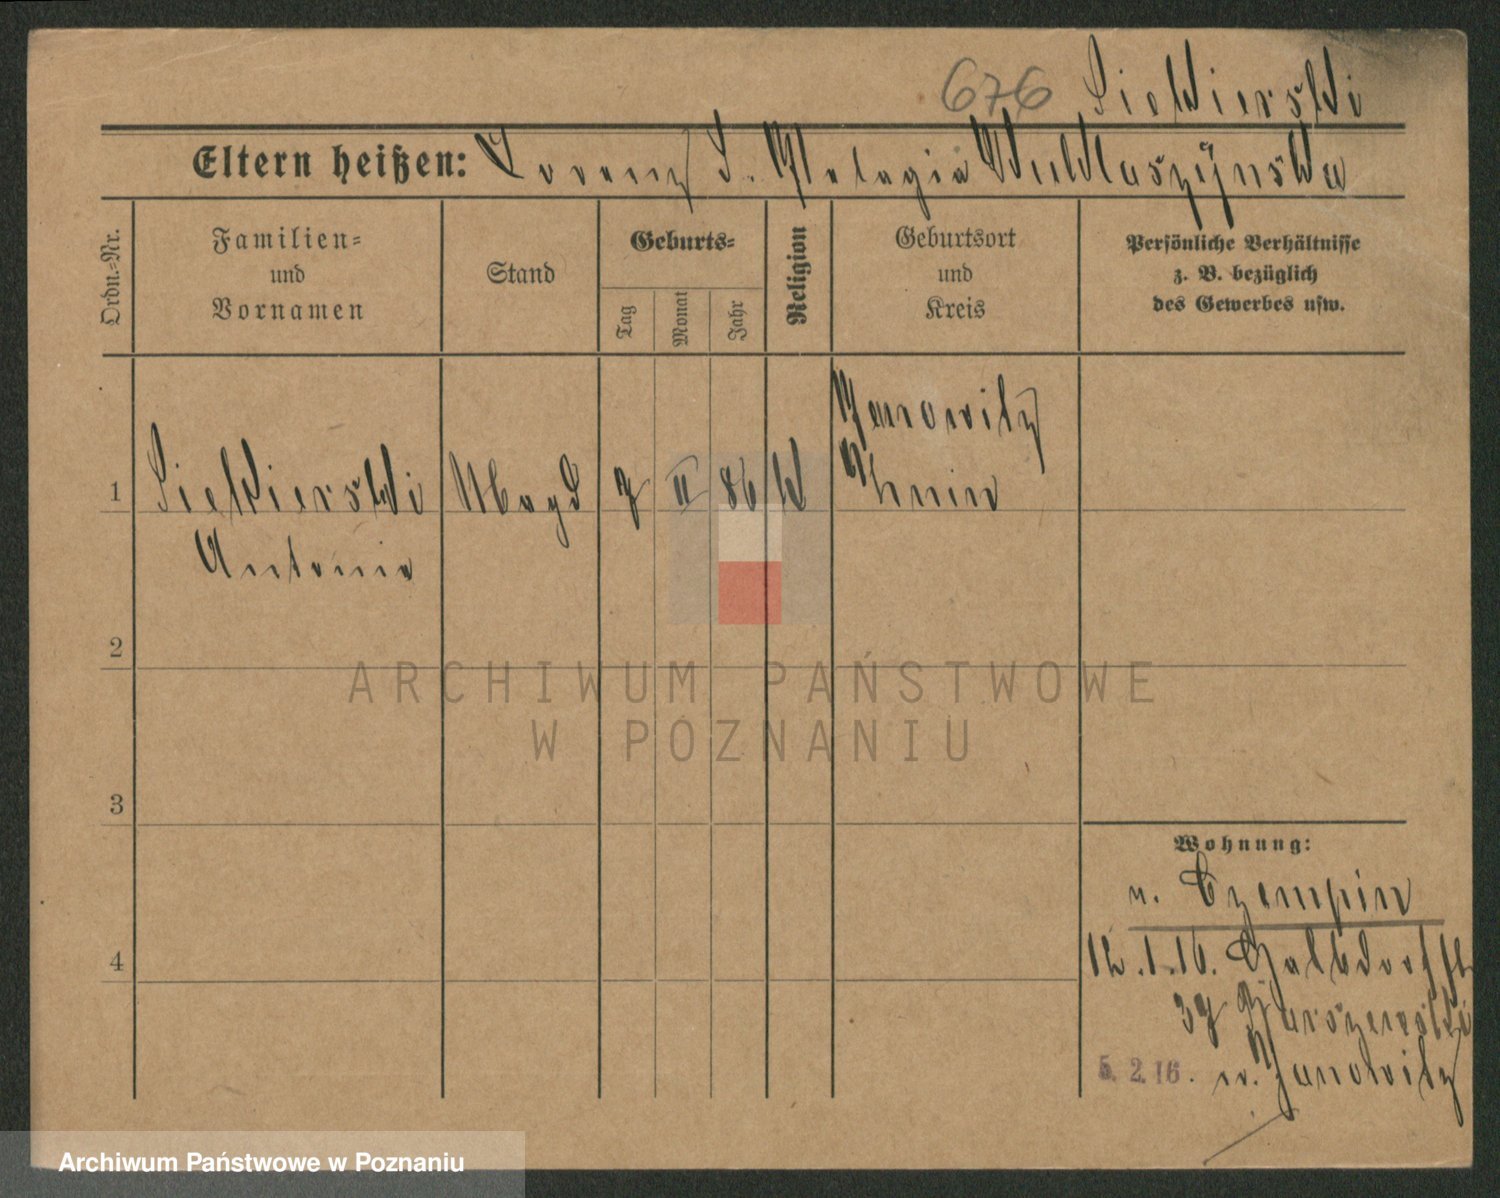 676 Siekierski
Eltern heißen: Lorenz S. Pelagia
Ordn.-Nr.
Familien-
und
Vornamen
Stand
Geburts-
Tag
Monat
Jahr
Religion
Geburtsort
und
Kreis
Persönliche Verhältnisse
z. B. bezüglich
des Gewerbes usw.
1 Siekierski Magd 7 II 86 k Janowitz
Znin
Antonie
2
3
4
Wohnung:
n. Czempin
12.1.16.
37
5. 2. 16. n. Janowitz
ARCHIWUM PAŃSTWOWE
W POZNANIU
Archiwum Państwowe w Poznaniu